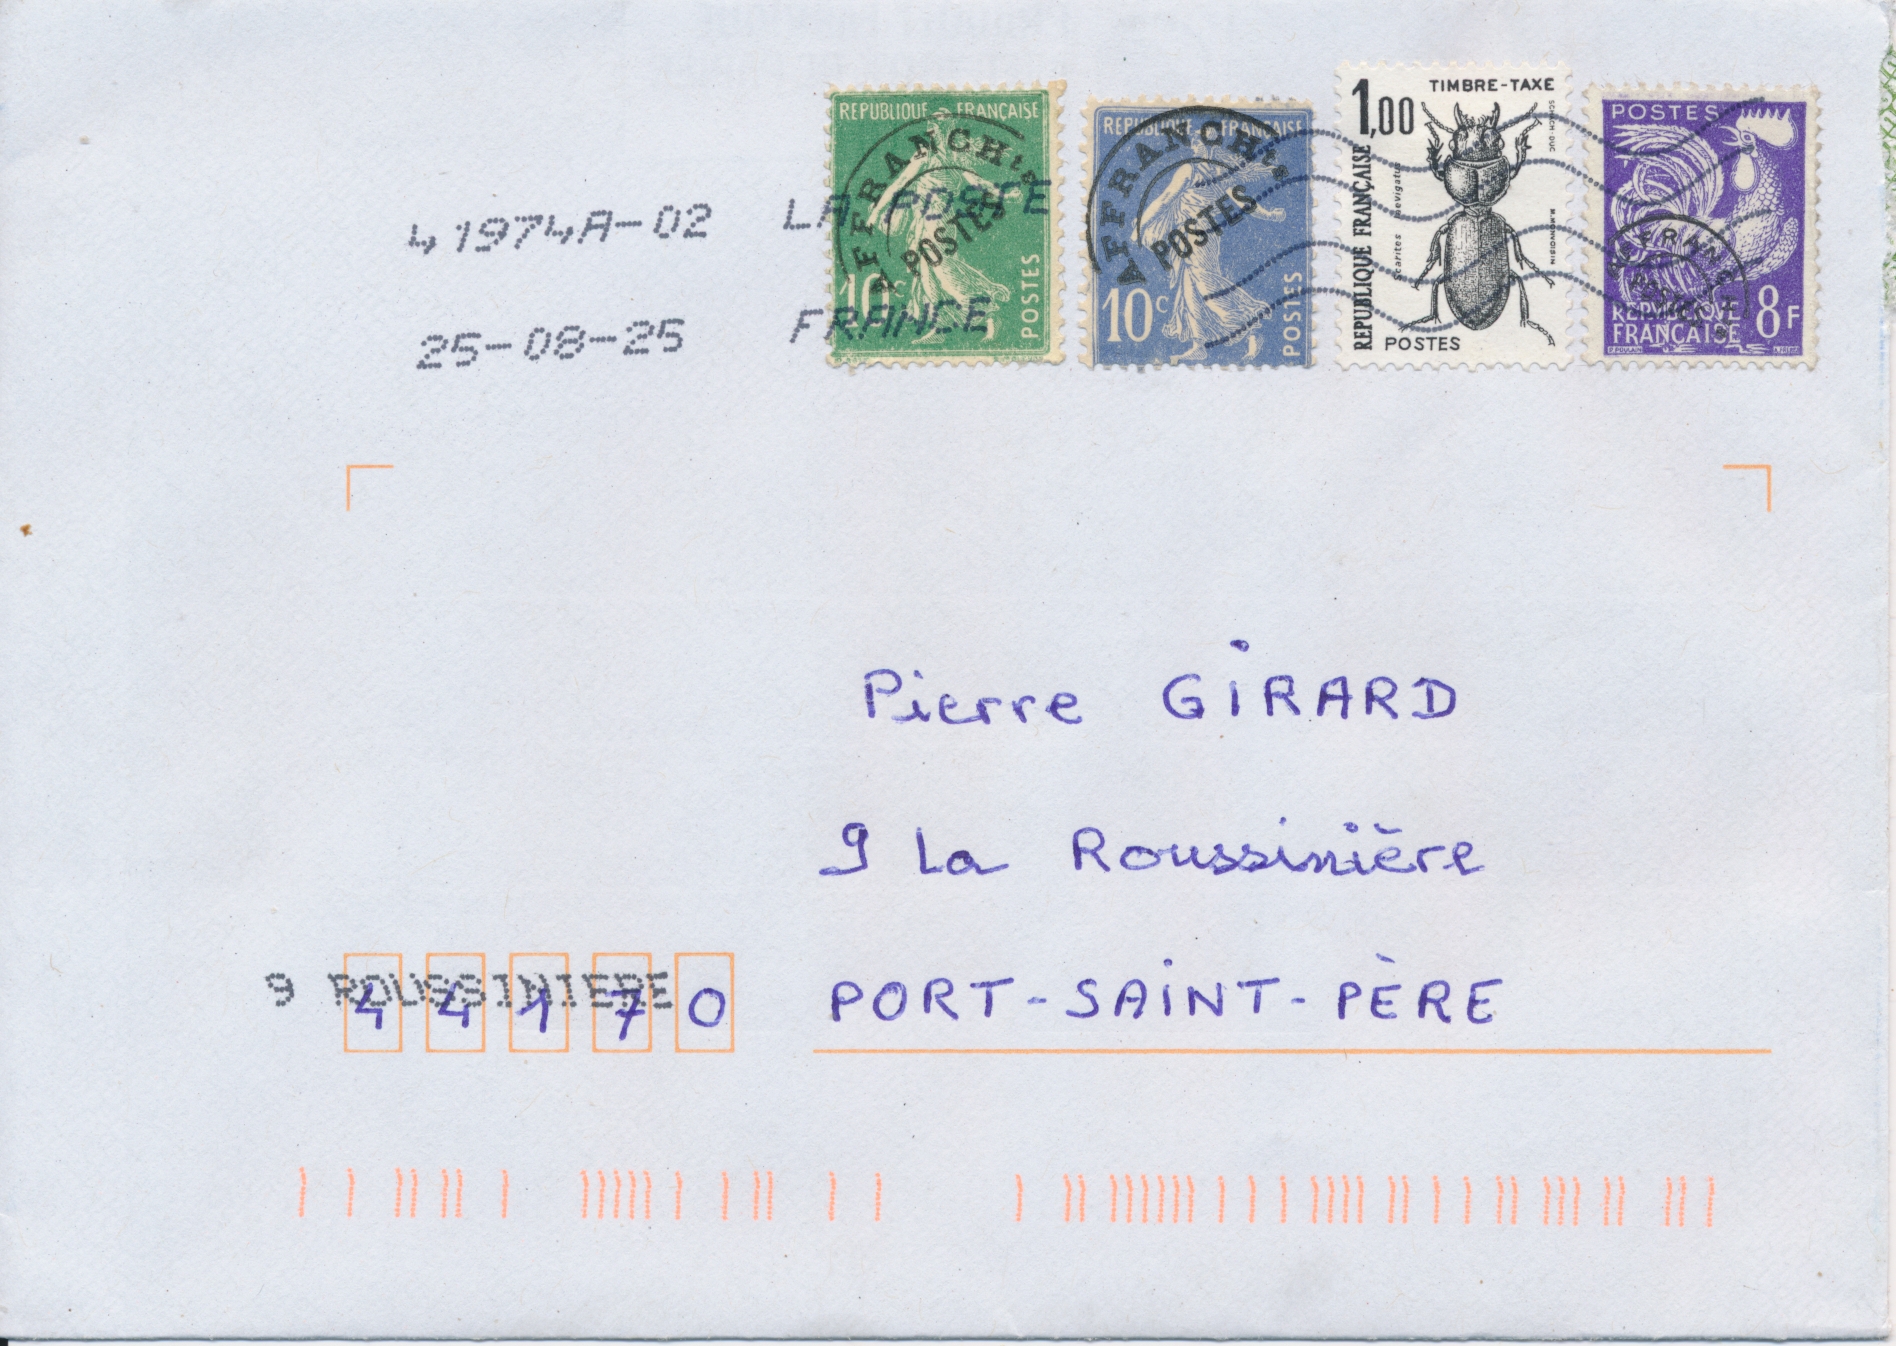 41974A-02 LA POSTE
25-08-25 FRANCE
REPUBLIQUE FRANÇAISE
AFFRANCHts
POSTES
10c
POSTES
REPUBLIQUE FRANÇAISE
AFFRANCHts
POSTES
10c
POSTES
1,00
TIMBRE-TAXE
REPUBLIQUE FRANÇAISE
Scarites laevigatus
POSTES
POSTES
AFFRANCHts
POSTES
REPUBLIQUE
FRANÇAISE
8F
Pierre GIRARD
9 La Roussinière
9 ROUSSINIERE
44170 PORT-SAINT-PÈRE